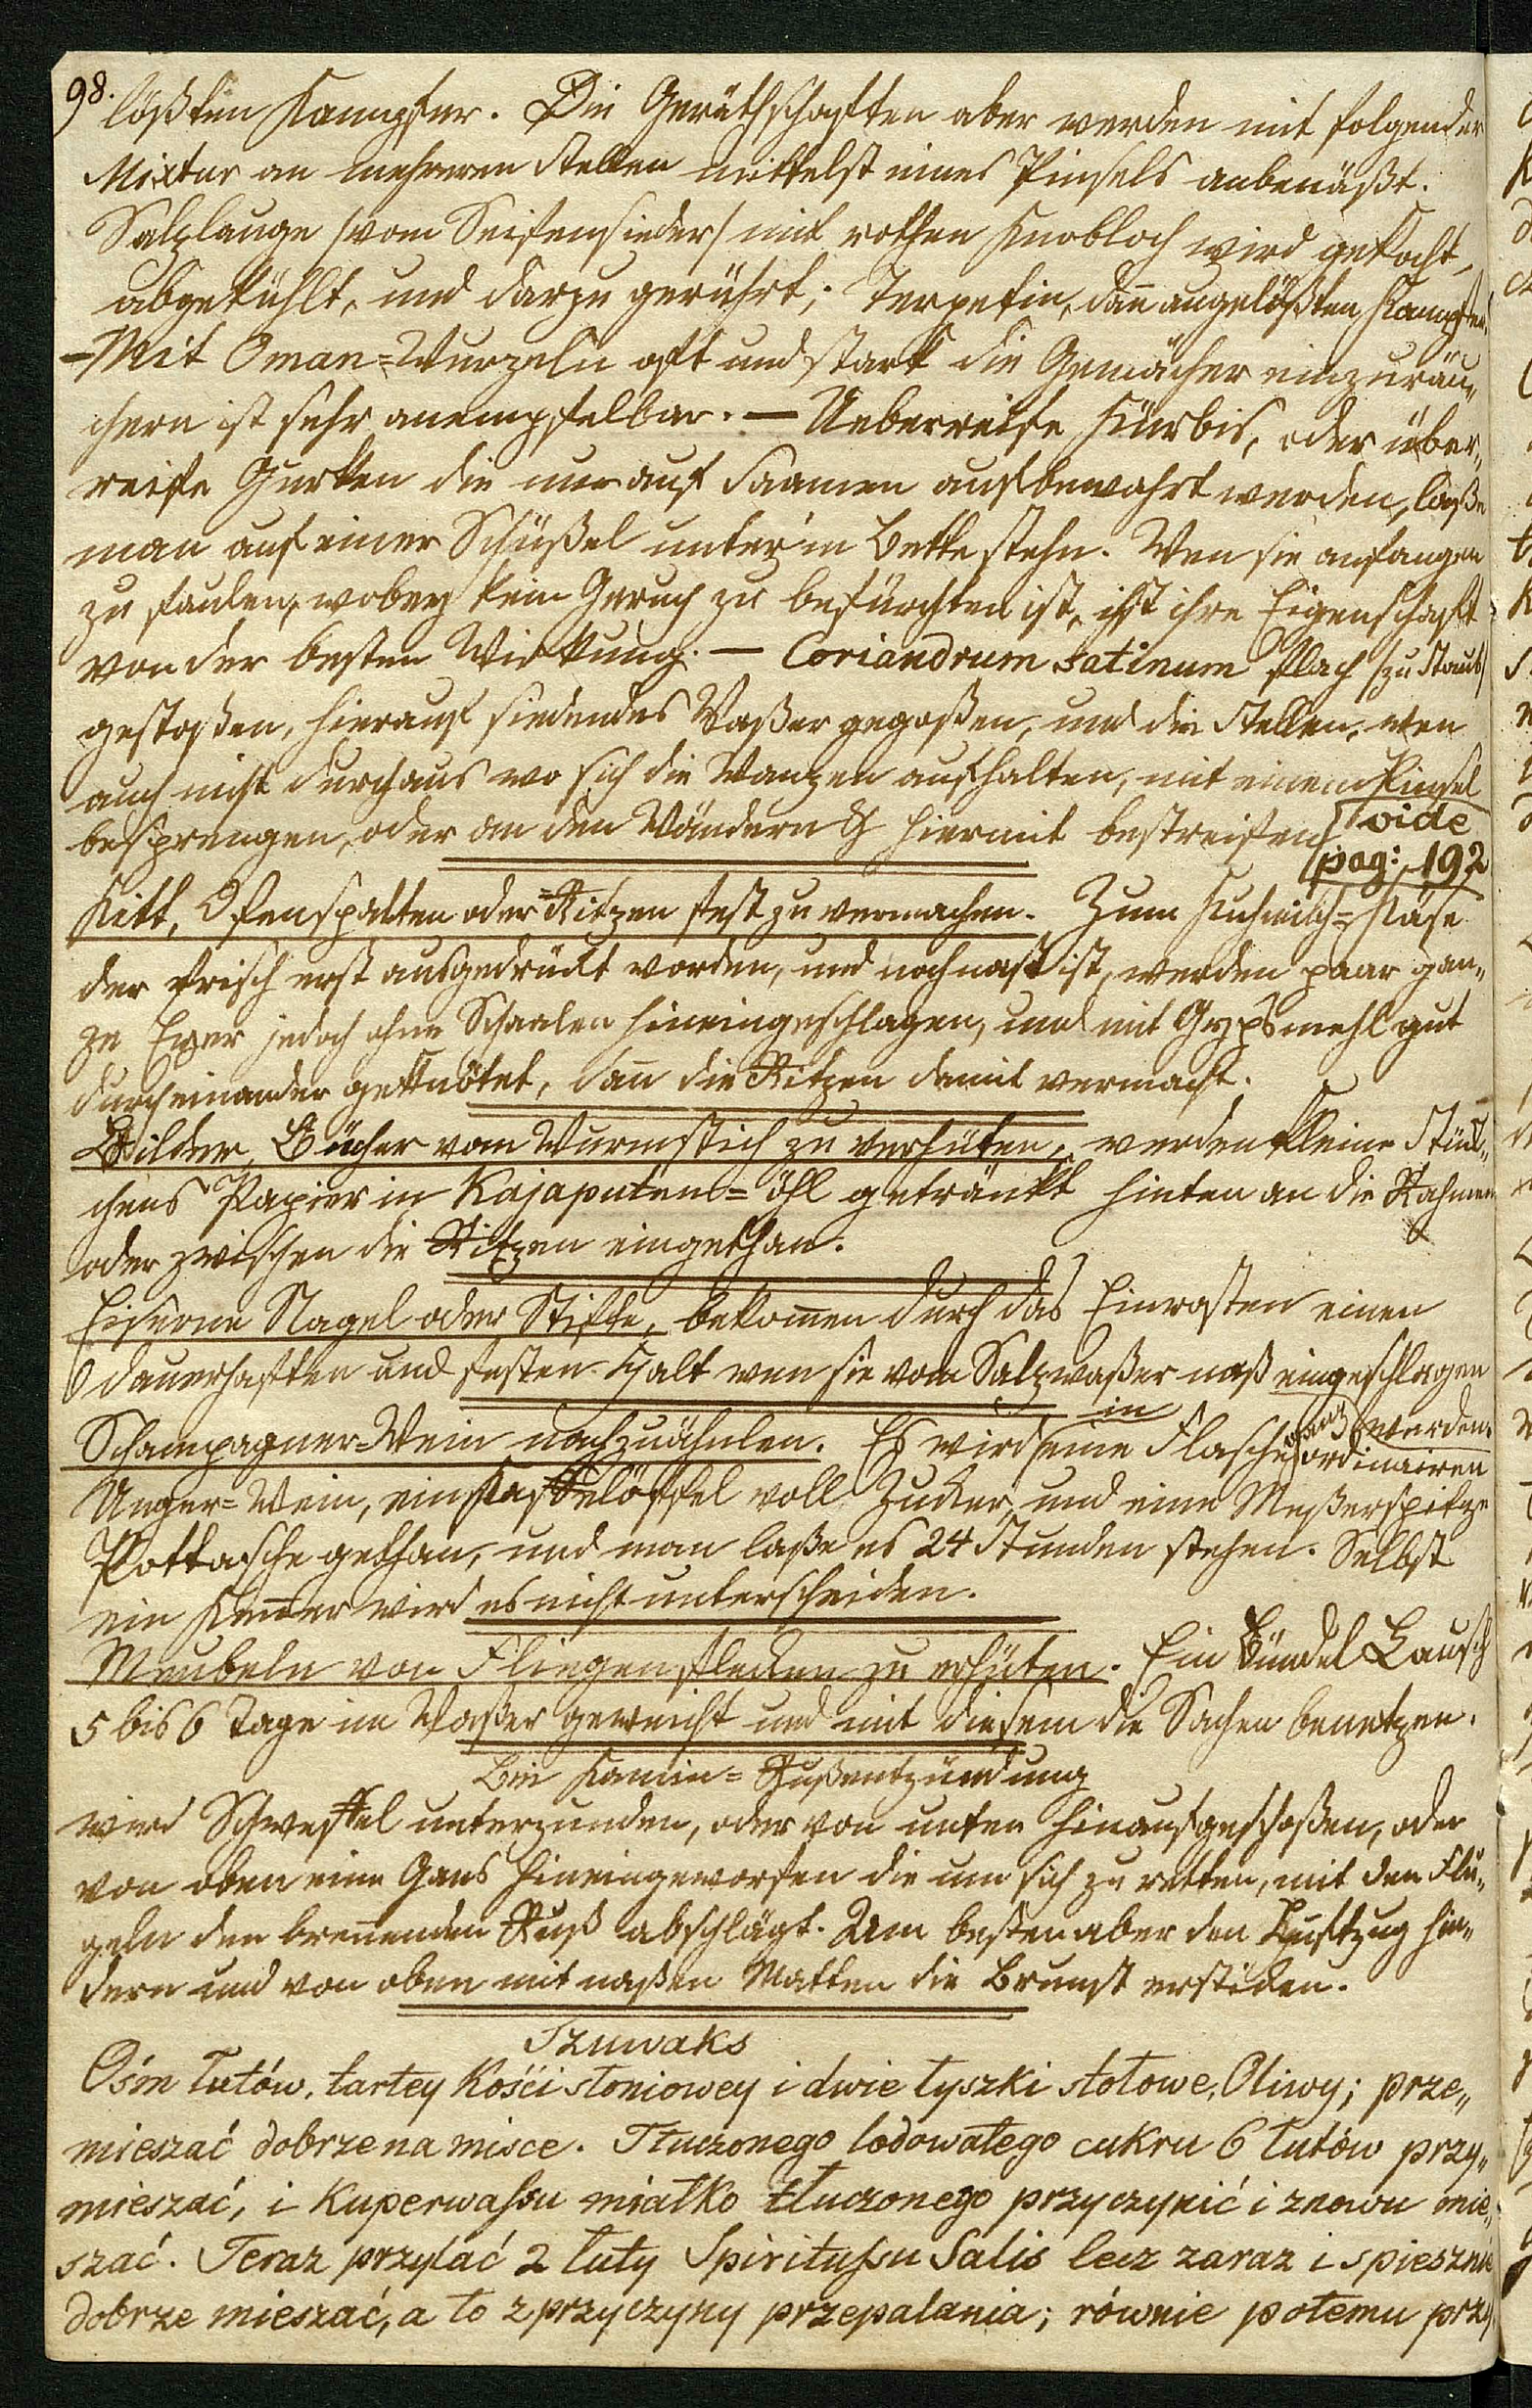 98.
lößten Kampfer. Die Geräthschaften aber werden mit folgender
Mixtur an mehreren Stellen mittelst eines Pinsels anbenäßt.
Salzlauge /vom Seifensieder/ mit rothen Knobloch wird gekocht,
abgekühlt, und darzu gerührt; Terpetin, dañ angelößten Kampfer.
– Mit Oman=Wurzeln oft und stark die Gemächer einzuräu„
chern ist sehr anempfelbar. — Ueberreife Kürbis, oder über„
reife Gurken die nur auf Saamen aufbewahrt werden, laße
man auf einer Schüßel unter'm Bette stehn. Wen sie anfangen
zu faulen, wobey kein Geruch zu befürchten ist, ist ihre Eigenschaft
von der besten Wirkung. — Coriandrum satinum flach /zu Staub/
gestoßen, hierauf siedendes Waßer gegoßen, und die Stellen, wen
auch nicht durchaus wo sich die Wanzen aufhalten, mit einem Pinsel
besprengen, oder an den Wändern & hiermit bestreifen. vide
pag: 192
Kitt, Ofenspalten oder =Ritzen fest zu vermachen. Zum Kuhmilch=Käse
der frisch erst ausgedrückt worden, und noch naß ist, werden paar gan„
ze Eyer jedoch ohne Schaalen hineingeschlagen, und mit Gypsmehl gut
durcheinander geknötet, dañ die Ritzen damit vermacht.
Bilder, Bücher vom Wurmstich zu verhüten, werden kleine Stük„
chens Papier in Kajaputen=öhl getränkt hinten an die Rahmen
oder zwischen die Ritzen eingethan.
Eiserne Nagel oder Stifte, bekom̃en durch das Einrosten einen
dauerhaften und festen Halt wen sie vom Salzwaßer naß eingeschlagen
werden.
Schampagner=Wein nachzuähnlen. Es wird in eine Flasche ordinairen
Unger=Wein, ein Kaffelöffel voll Zucker, und eine Meßerspitze
Pottasche gethan, und man laße es 24 Stunden stehen. Selbst
ein Keñer wird es nicht unterscheiden.
Meubeln von Fliegenflecken zu erhüten. Ein Bündel Lauch
5 bis 6 Tage im Waßer geweicht und mit diesem die Sachen benetzen.
Bei Kamin=Rußentzündung
wird Schweffel unterzunden, oder von unten hinaufgeschoßen, oder
von oben eine Gans hineingeworfen die um sich zu retten, mit den Flü„
geln den breñenden Ruß abschlägt. Am besten aber den Luftzug hin„
dern und von oben mit naßen Matten die Brunst ersticken.
Szuwaks
Ośm łutów, tartey Kości słoniowey i dwie łyszki stołowe, Oliwy; prze„
mieszać dobrze na misce. Tłuczonego lodowatego cukru 6 łutów przy„
mieszać, i Kuperwaſsu miałko tłuczonego przyczynić i znowu mie„
szać. Teraz przylać 2 łuty Spirituſsu Salis lecz zaraz i spiesznie
dobrze mieszać, a to z przyczyny przepalania; równie potemu przy